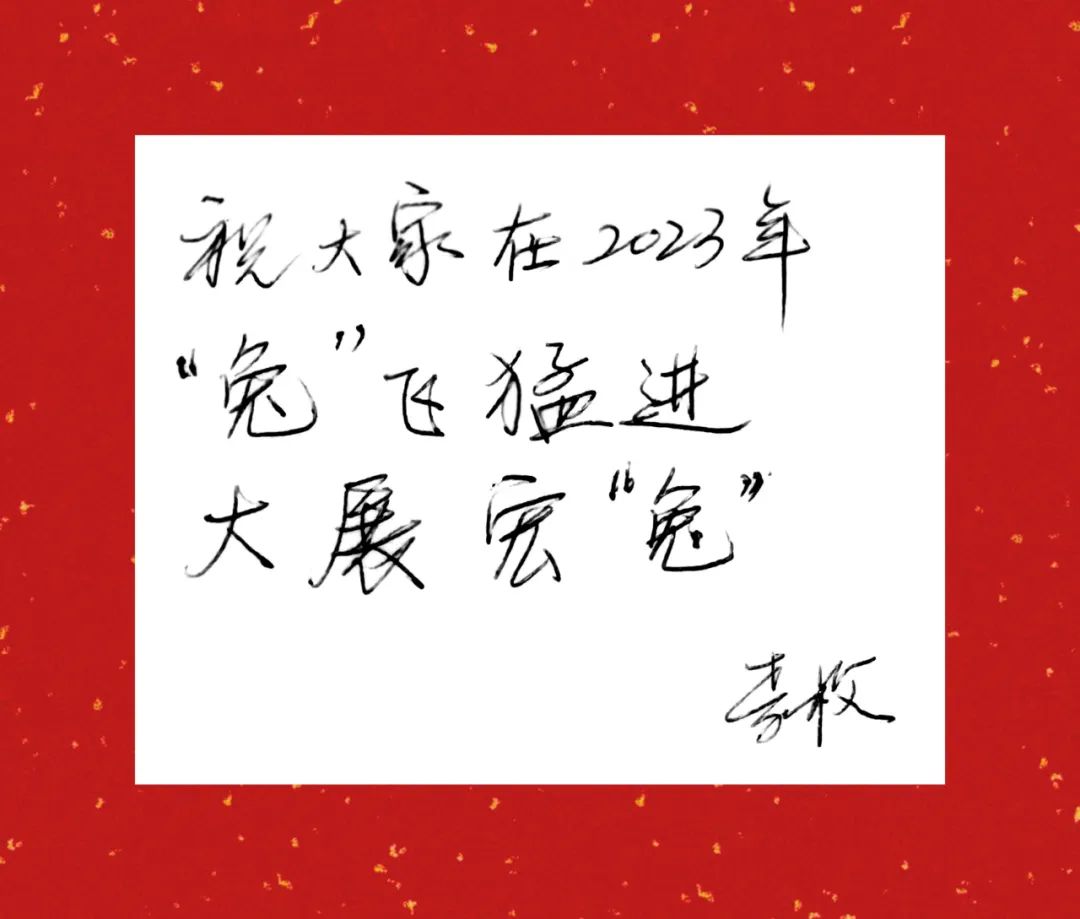 祝大家在2023年
“兔”飞猛进
大展宏“兔”
李枚